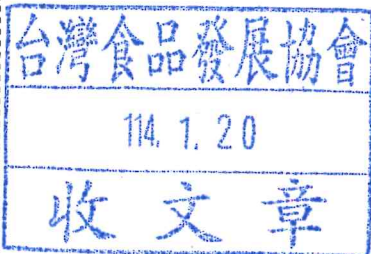 台灣食品發展協會
114. 1. 20
收文章